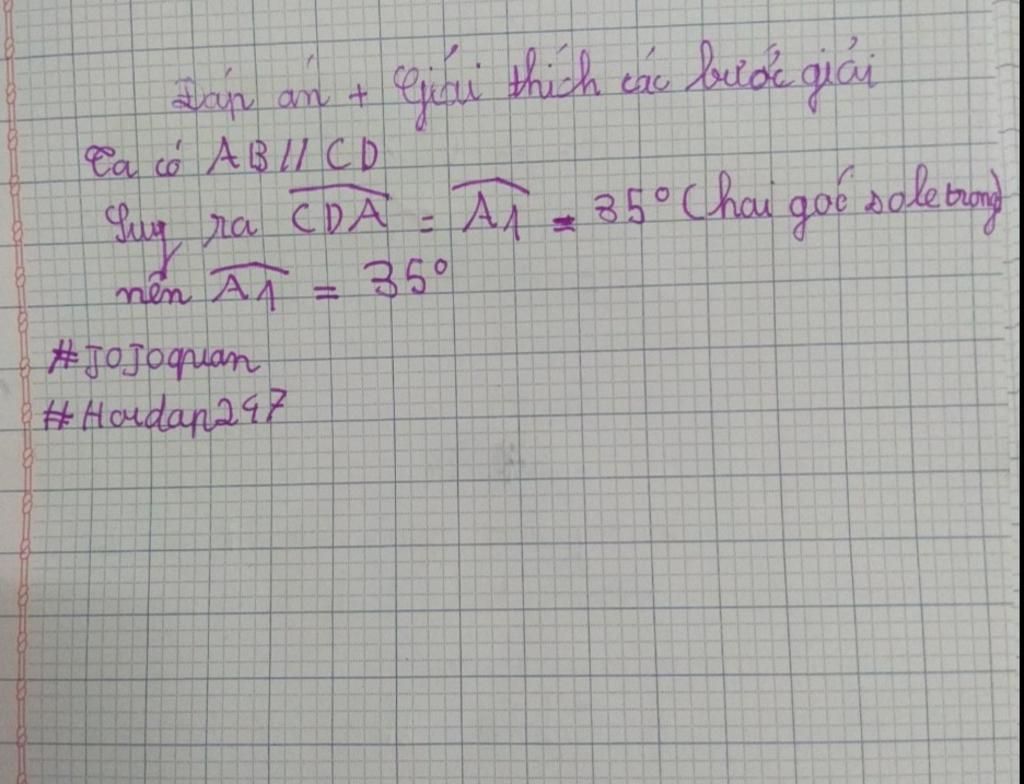 Đáp án + Giải thích các bước giải
Ta có AB // CD
Suy ra CDA = A1 = 35° (hai góc so le trong)
nên A1 = 35°
#JOJoquan
#Hoidap247